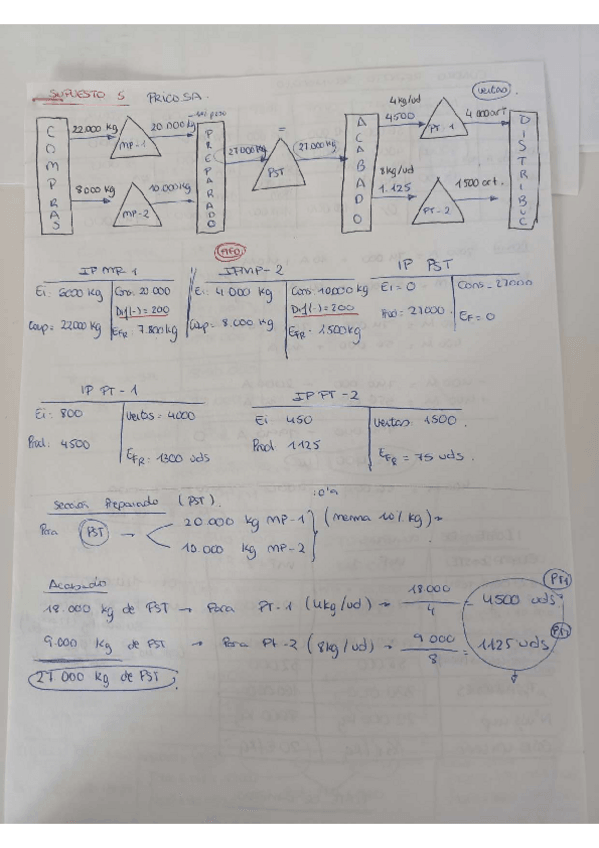 SUPUESTO 5 PRICO SA.
ventas.
COMPRAS
22.000 kg
MP-1
20.000 kg
8.000 kg
MP-2
10.000 kg
PREPARADO
27.000 kg
PST
27.000 kg
ACABADO
4kg/ud
4500
PT-1
4.000 art
8kg/ud
1.125
PT-2
1500 art.
DISTRIBUC
IP MP-1
Ei: 6000 kg
Cons: 20.000
Dif(-) = 200
Comp = 22000 kg
EFR: 7.800 kg
IP MP-2
Ei: 4.000 kg
Cons: 10.000 kg
Dif(-) = 200
Comp = 8.000 kg
EFR = 1.500 kg
IP PST
Ei = 0
Cons = 27000
27000
EF = 0
IP PT-1
Ei: 800
Ventas = 4000
Prod: 4500
EFR = 1300 uds
IP PT-2
Ei 450
Ventas: 1500.
Prod: 1125
EFR = 75 uds.
Sección Preparado (PST).
Para PST → 20.000 kg MP-1
10.000 kg MP-2
(merma 10%/kg)
Acabado
18.000 kg de PST → Para PT-1 (4kg/ud) → 18.000 / 4 = 4500 uds PT1
9.000 kg de PST → Para PT-2 (8kg/ud) → 9.000 / 8 = 1125 uds
27.000 kg de PST.